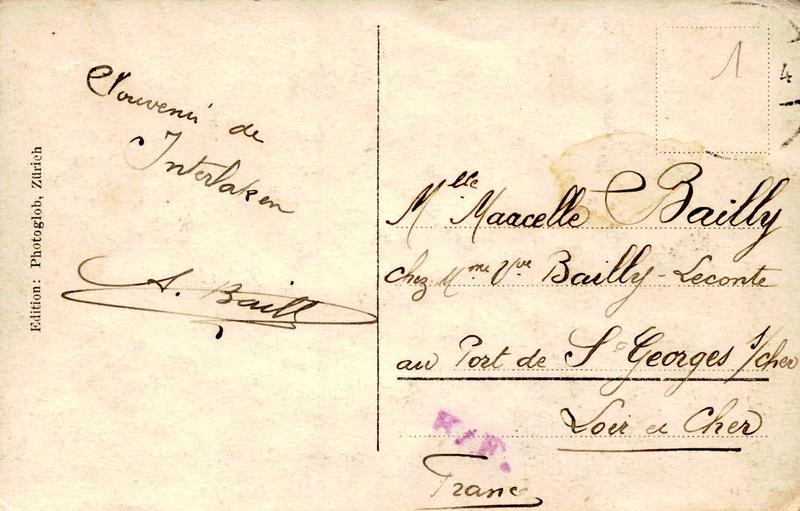 Souvenir de
Interlaken
A. Bailly
Edition: Photoglob, Zürich
1
4
Mlle Maacelle Bailly
chez Mme Vve Bailly-Leconte
au Port de St Georges s/cher
Loir et Cher
France